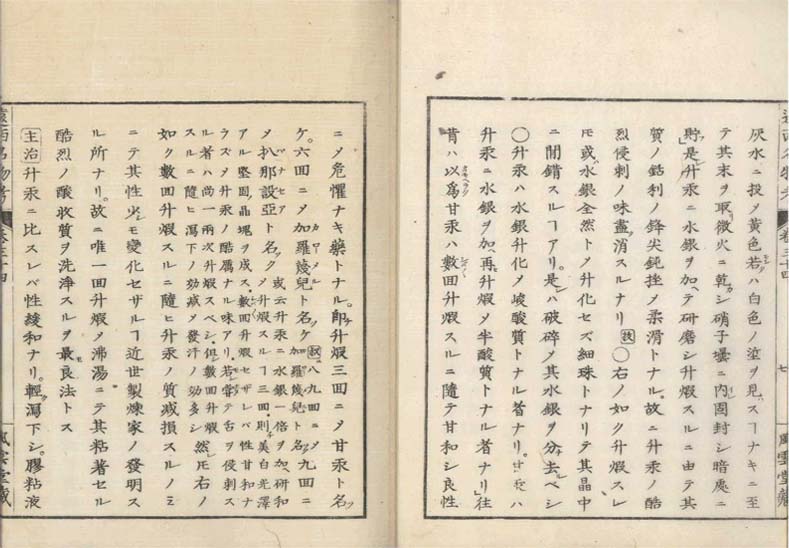 灰水ニ投メ黄色若ハ白色ノ塗ヲ見スヿナキニ至
テ其末ヲ取微火ニ乾カシ硝子壜ニ内固封シ暗處ニ
貯フ是レ升汞ニ水銀ヲ加ヘテ研磨シ升煆スルニ由テ其
質ノ銛利ノ鋒尖鈍挫メ柔滑トナル。故ニ升汞ノ酷
烈侵刺ノ味盡ク消スルナリ 〇右ノ如ク升煆スレ
𪜈或ハ水銀全然トメ升化セズ細珠トナリテ其晶中
ニ間錯スルヿアリ。是レハ破碎メ其水銀ヲ分去ベシ
〇升汞ハ水銀升化メ峻酸質トナル者ナリ。甘汞ハ
升汞ニ水銀ヲ加ヘ再升煆メ半酸質トナル者ナリ往
昔ハ以爲甘汞ハ數回升煆スルニ隨テ甘和シ良性
七
風雲堂藏
ニメ危懼ナキ藥トナル。即チ升煆三回ニメ甘汞ト名
ケ。六回ニメ加羅蔑兒ト名ケ 八九回ニメ九回ニ
或云升汞ニ水銀一倍ヲ加ヘ研和
メ扒那設亞ト名クメ升煆スルヿ三回。則チ美白光澤
アル堅固晶塊ヲ成ス。數回升煆セザレバ性甘和ナ
ラズメ升汞ノ酷厲ナル味アリ。若嘗テ舌ヲ侵刺ス
ル者ハ尚一兩次升煆スベシ。但數回升煆
スルニ隨ヒ瀉下ノ効減メ發汗ノ効多シ 然𪜈右ノ
如ク數回升煆スルニ隨ヒ升汞ノ質減損スルノミ
ニテ其性少シモ變化セザルヿ近世製煉家ノ發明ス
ル所ナリ。故ニ唯一回升煆メ沸湯ニテ其粘著セル
酷烈ノ酸收質ヲ洗淨スルヲ最モ良法トス
主治 升汞ニ比スレバ性緩和ナリ。輕ク瀉下シ。膠粘液
遠西名物考 卷三十四